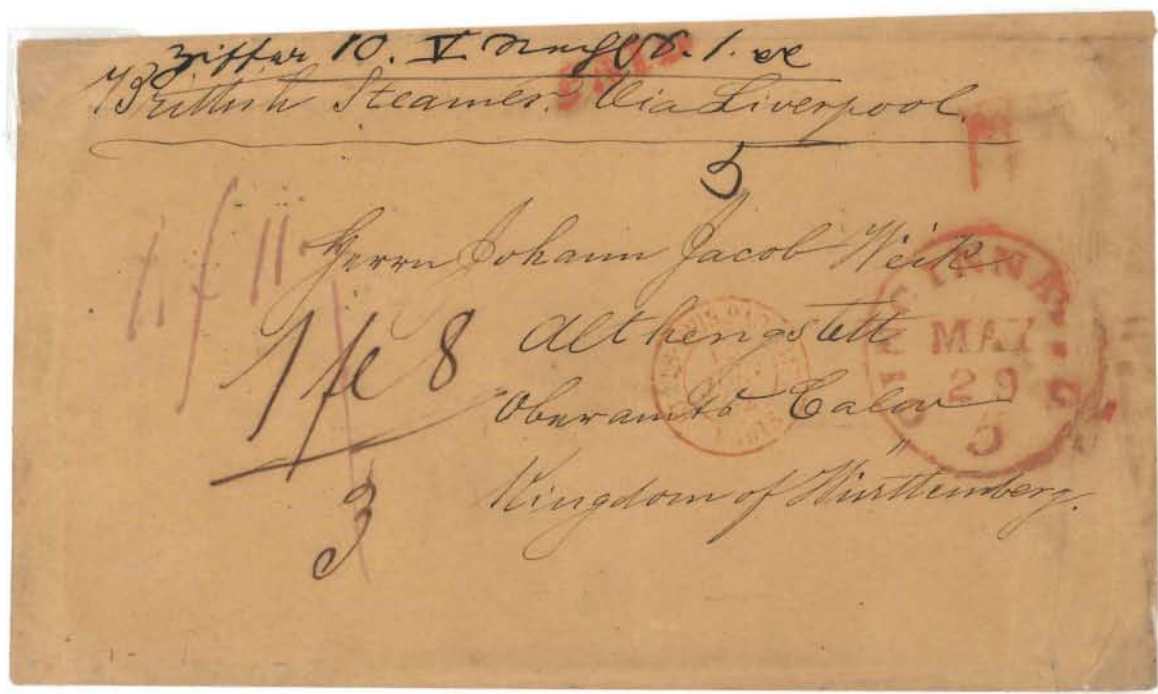 Ziffer 10. V
PAID
Brittish Steamer. Via Liverpool.
5
Herrn Johann Jacob Weik
Althengstett
Oberamts Calw
Kingdom of Württemberg.
1 fl 8
3
CINCINNATI O.
MAY
29
5